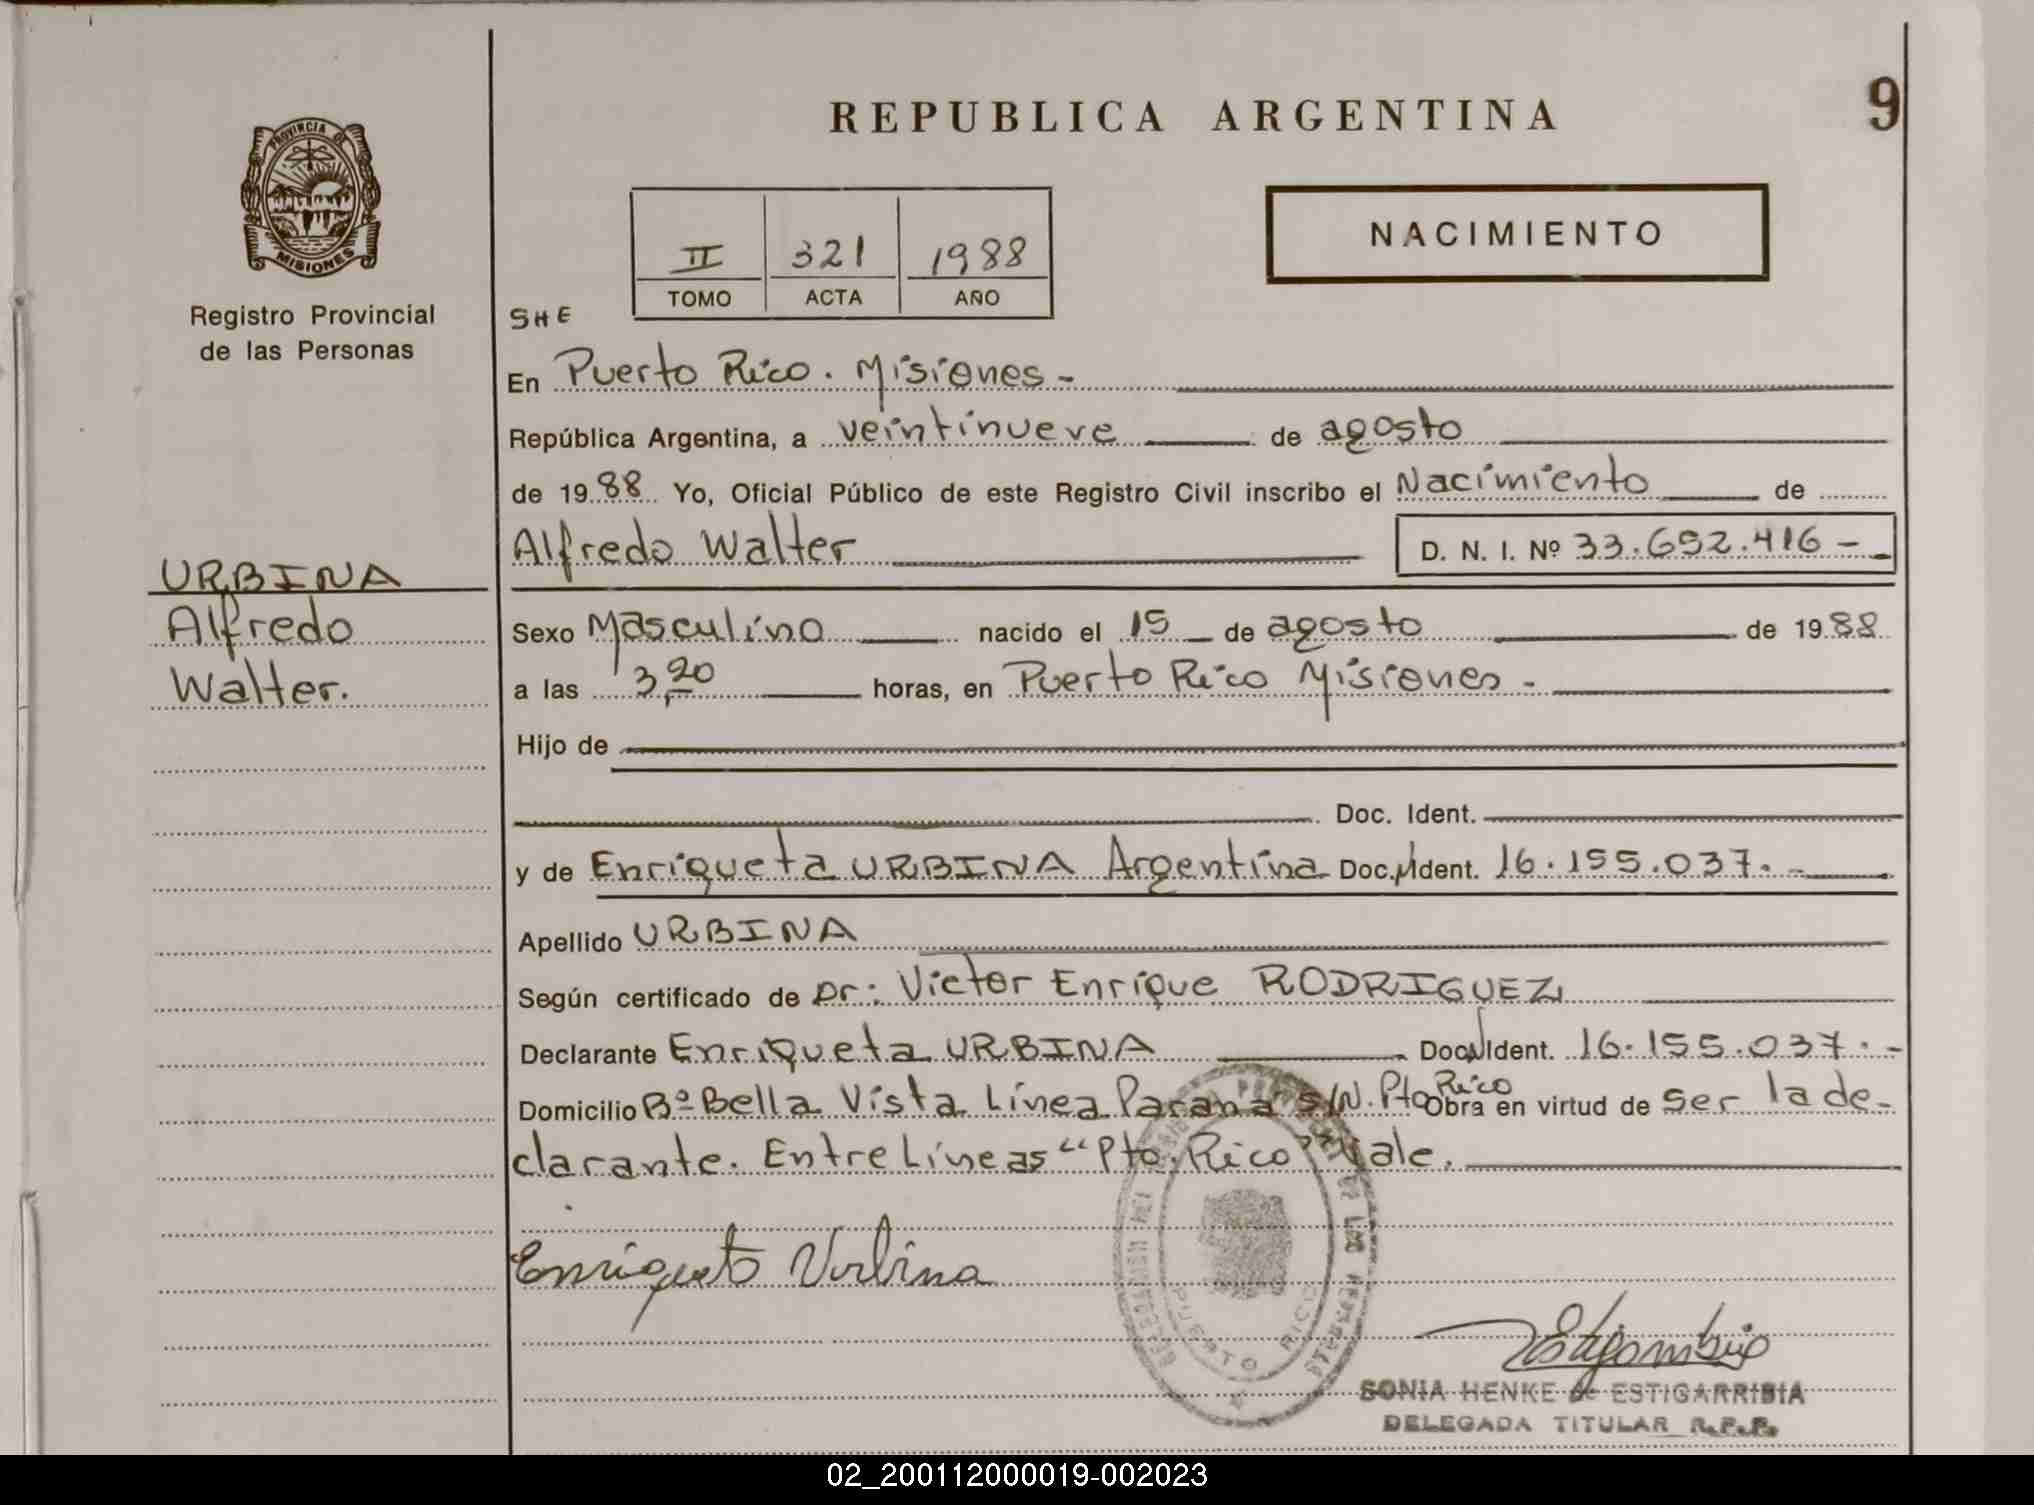 REPUBLICA ARGENTINA
9
PROVINCIA DE
MISIONES
Registro Provincial
de las Personas
II 321 1988
TOMO ACTA AÑO
NACIMIENTO
SHE
En Puerto Rico. Misiones -
República Argentina, a veintinueve de agosto
de 1988 Yo, Oficial Público de este Registro Civil inscribo el Nacimiento de
Alfredo Walter D. N. I. Nº 33.692.416 -
URBINA
Alfredo
Walter.
Sexo Masculino nacido el 15 de agosto de 1988
a las 3,20 horas, en Puerto Rico Misiones -
Hijo de
Doc. Ident.
y de Enriqueta URBINA Argentina Doc. Ident. 16.155.037. -
Apellido URBINA
Según certificado de Dr: Victor Enrique RODRIGUEZ
Declarante Enriqueta URBINA Doc. Ident. 16.155.037. -
Domicilio Bº Bella Vista Línea Paraná S/N. Pto Rico Obra en virtud de ser la de-
clarante. Entre Líneas "Pto. Rico" Vale.
Enriqueta Urbina
PUERTO RICO
SONIA HENKE de ESTIGARRIBIA
DELEGADA TITULAR R.P.P.
02_200112000019-002023